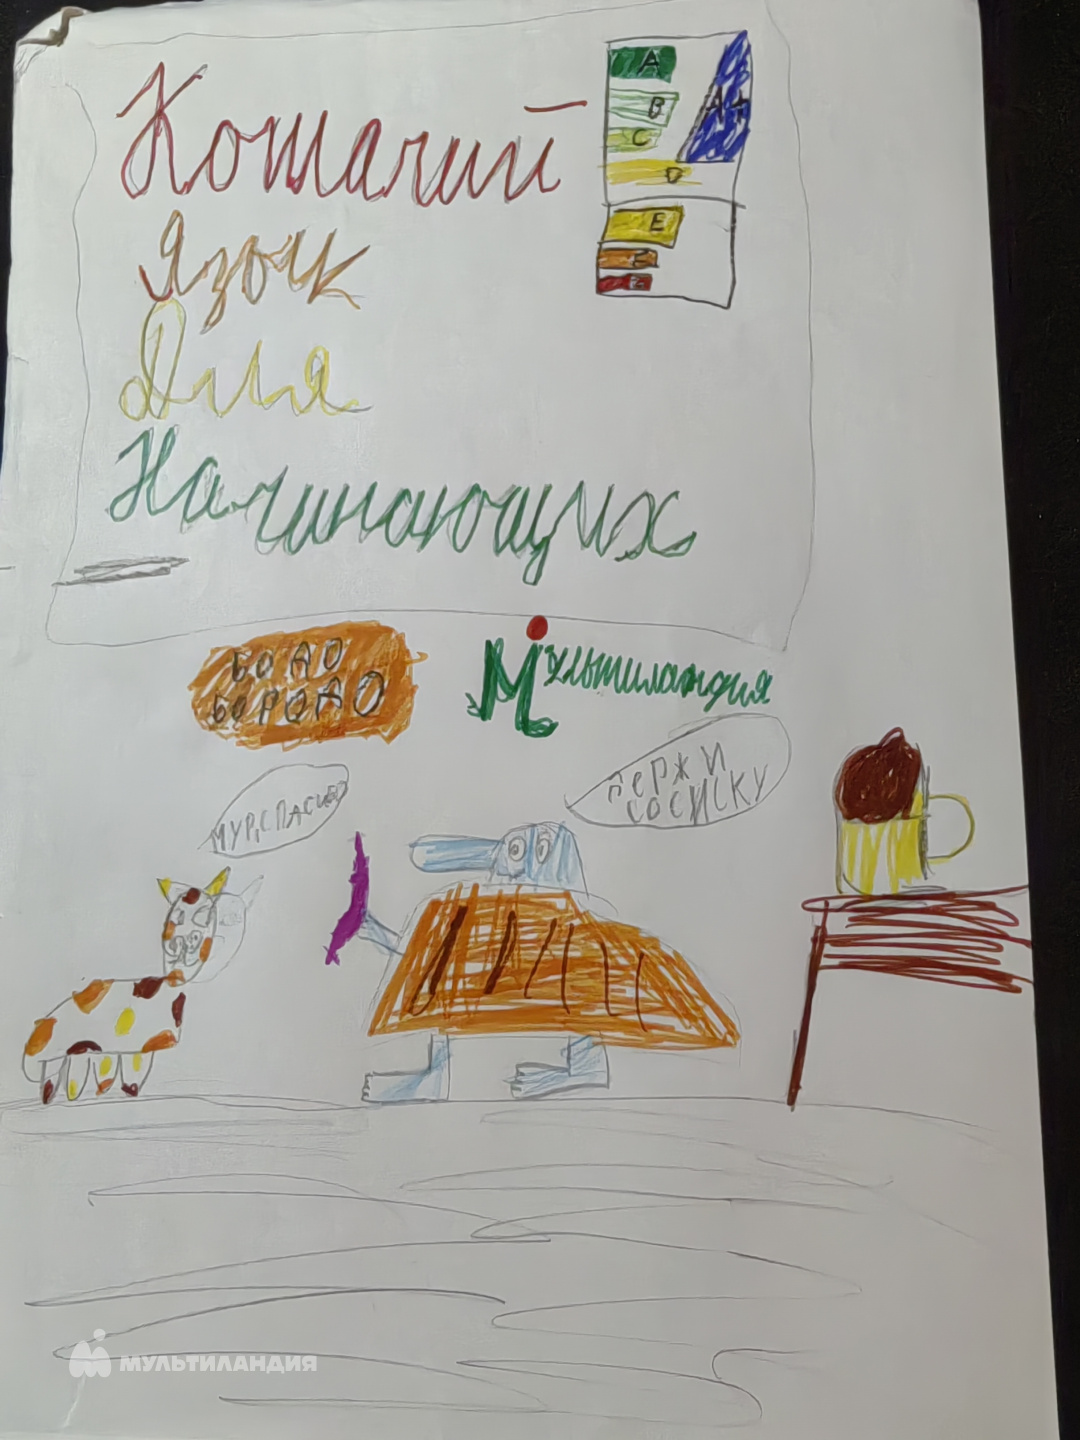 Кошачий
Язык
Для
Начинающих
A
B
A+
C
D
E
БОДО
БОРОДО
Мультиландия
МУР, СПАСИБО
ДЕРЖИ
СОСИСКУ
МУЛЬТИЛАНДИЯ